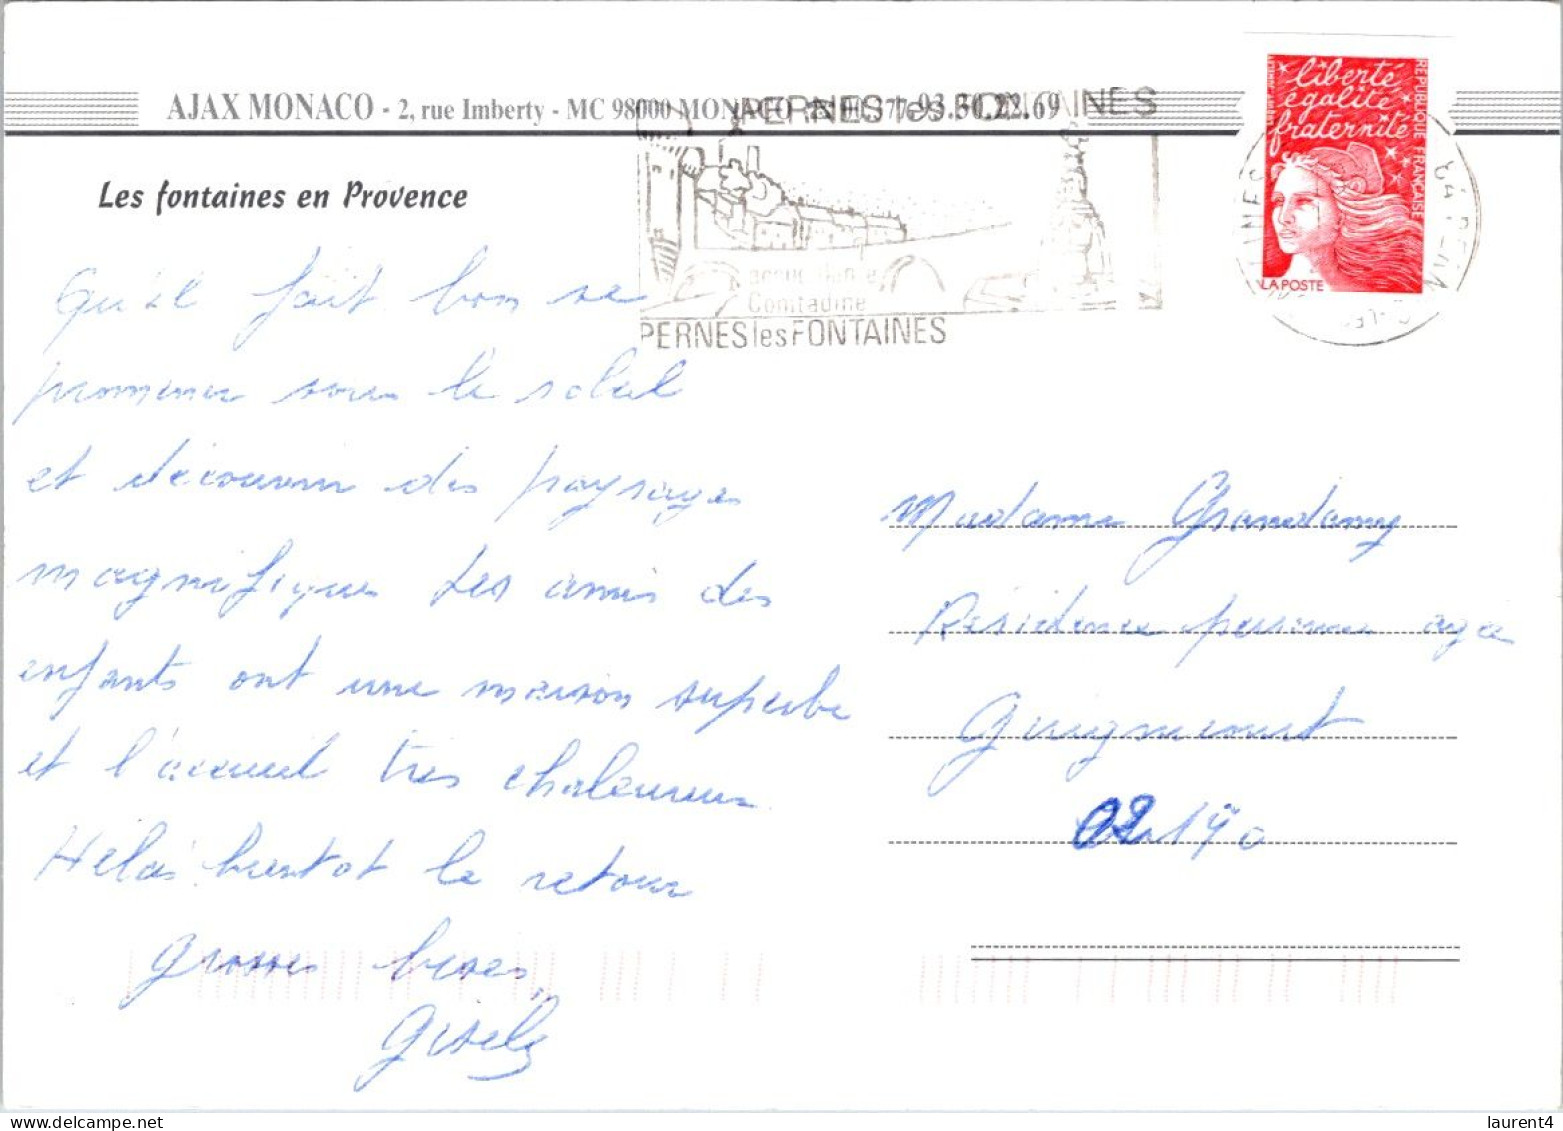 AJAX MONACO - 2, rue Imberty - MC 98000 MONACO 93.30.22.69
PERNES les FONTAINES
liberté
égalité
fraternité
REPUBLIQUE FRANÇAISE
LA POSTE
Les fontaines en Provence
Comtadine
PERNES les FONTAINES
Qu'il fait bon se
promener sous le soleil
et découvrir des paysages
magnifiques Les amis des
enfants ont une maison superbe
et l'accueil très chaleureux
Hélas bientot le retour
Grosses bises
Gisele
Madame Grandamy
Résidence personne agée
Guignicourt
02190
laurent4